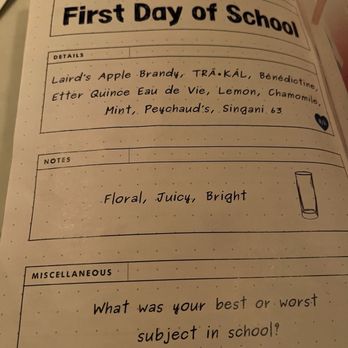 First Day of School
DETAILS
Laird's Apple Brandy, TRÄ•KÁL, Bénédictine,
Etter Quince Eau de Vie, Lemon, Chamomile,
Mint, Peychaud's, Singani 63
NOTES
Floral, Juicy, Bright
MISCELLANEOUS
What was your best or worst
subject in school?